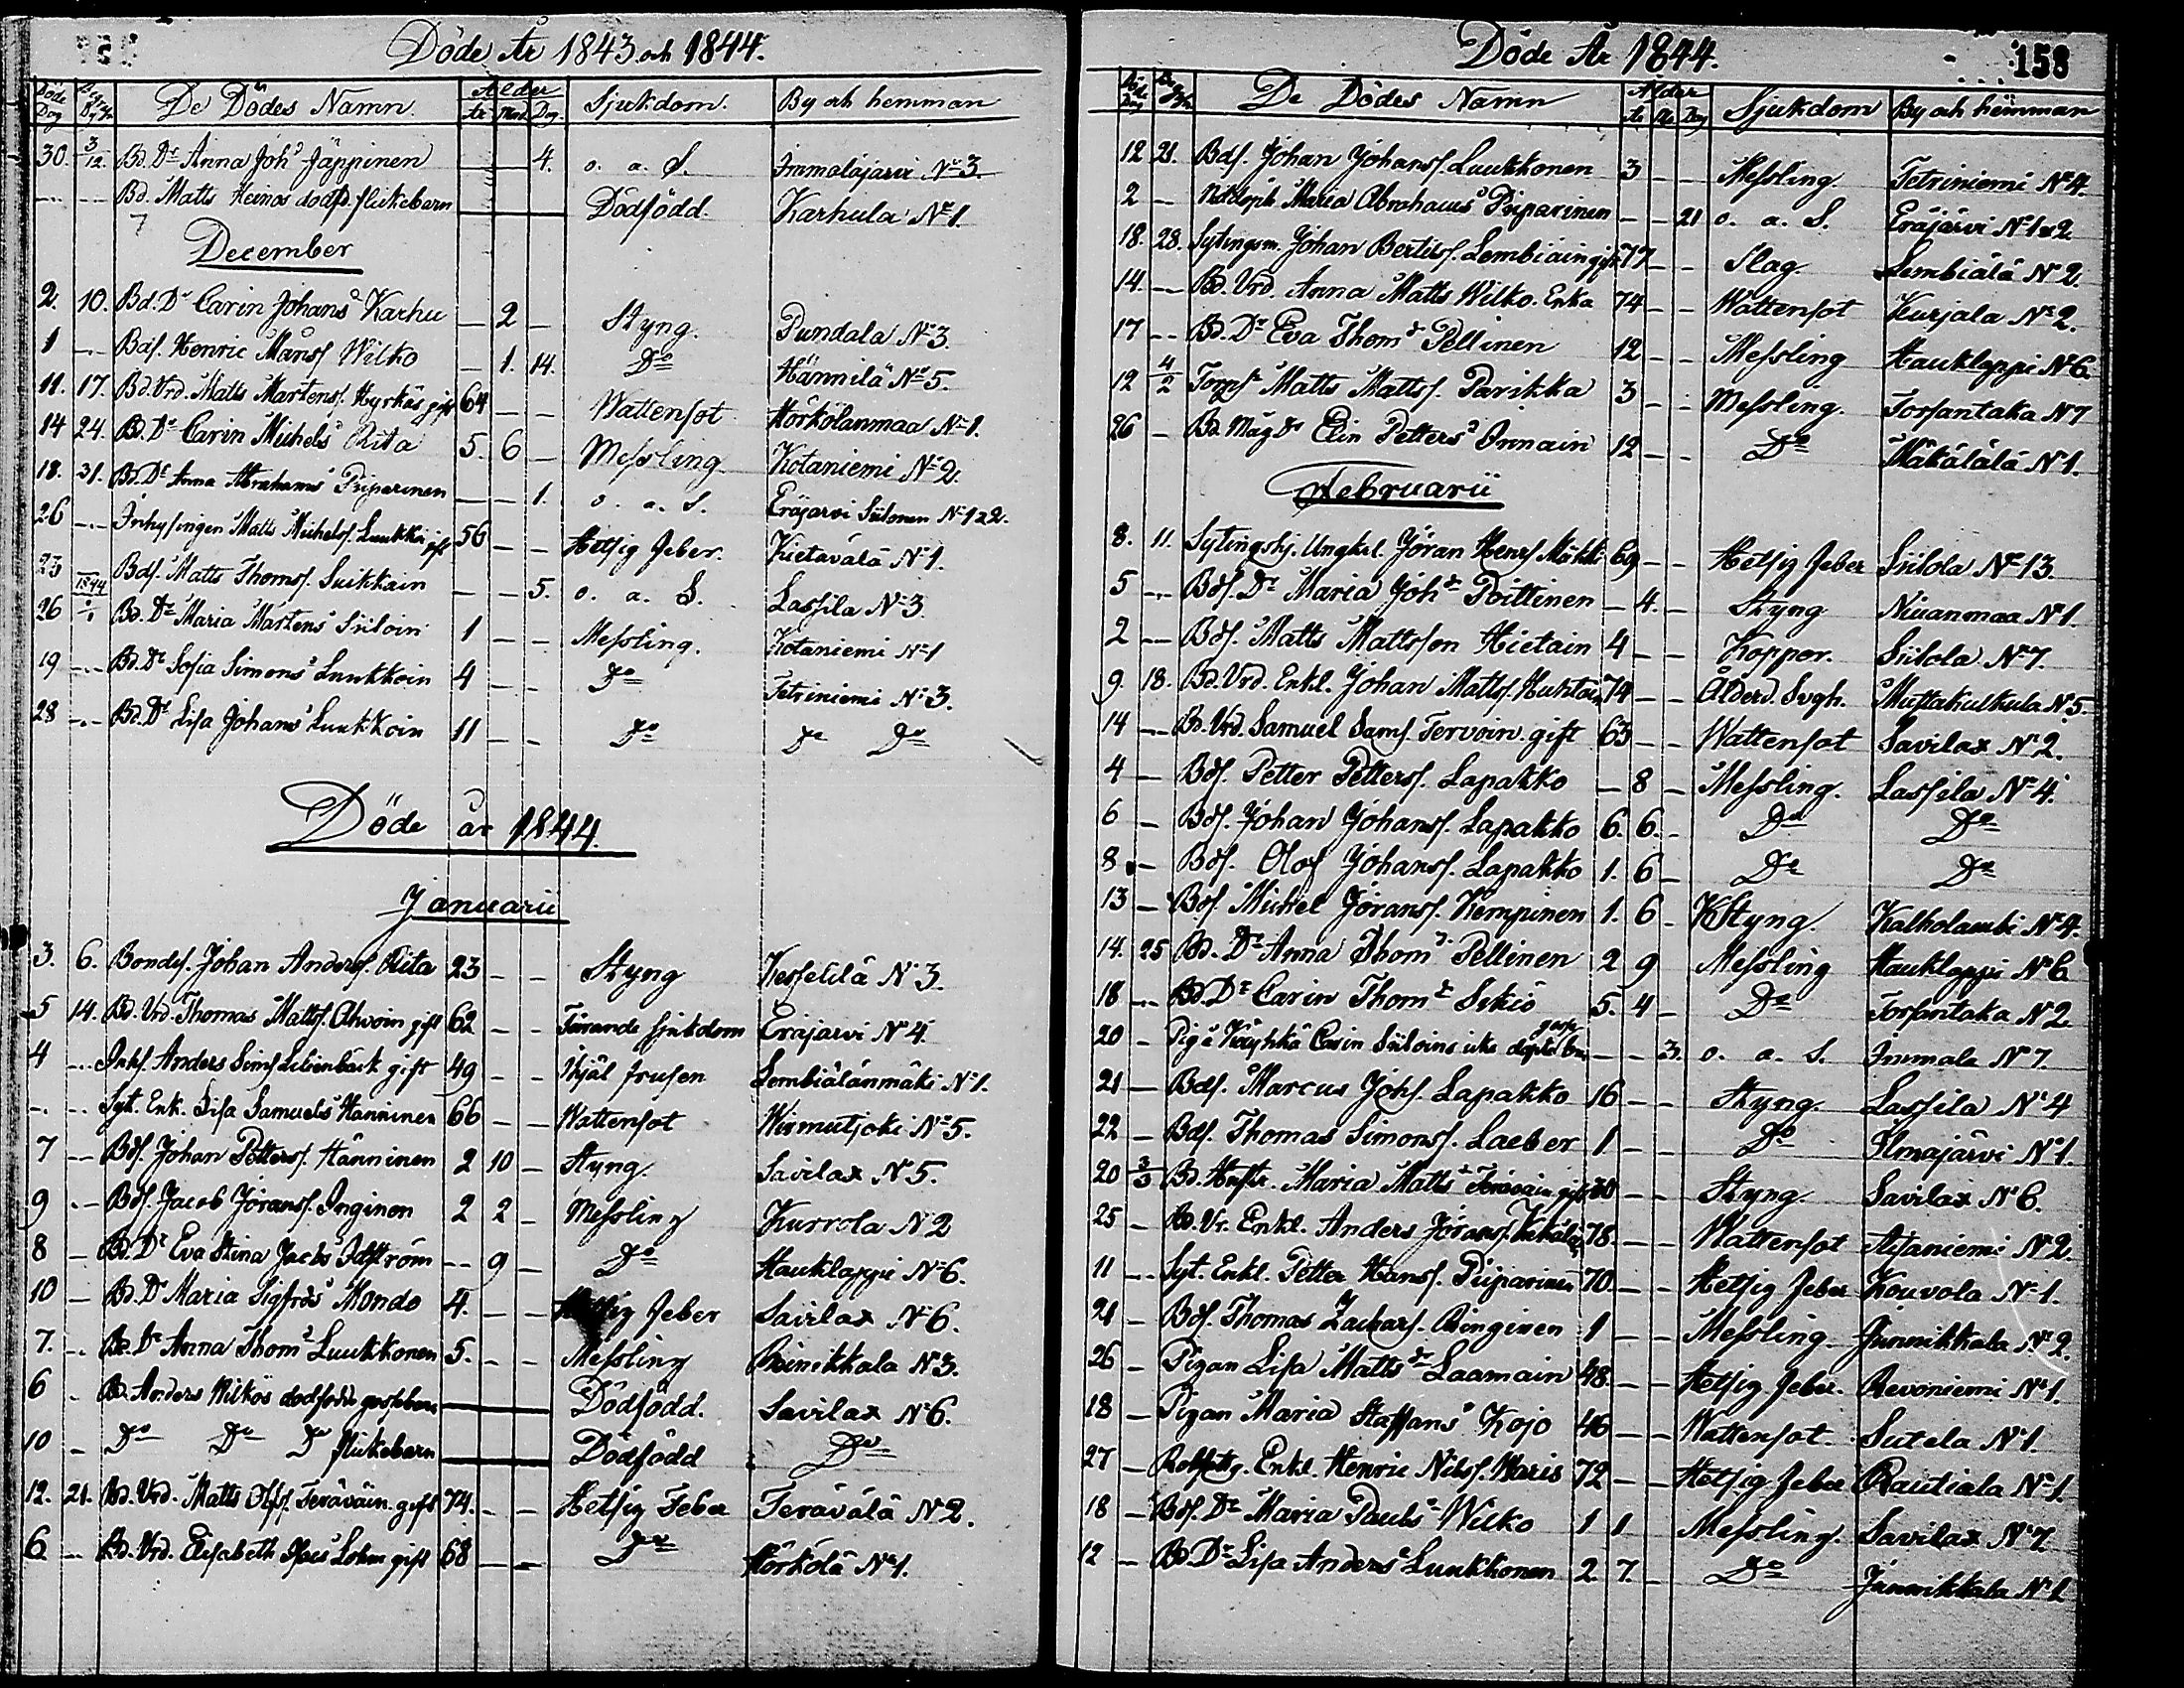 Döde År 1843 och 1844.
Döde Dag Begr. Dg De Dödes Namn. Ålder År Mån. Dag. Sjukdom. By och hemman
30. 3/12. Bd. Dr Anna Johs Jäppinen — — 4. o. a. S. Immolajärvi No 3.
Bd. Matts Heinos dödfd. flickebarn Dödfödd. Karhula No 1.
December
2. 10. Bd. Dr Carin Johans Karhu — 2 — Styng. Pundala No 3.
1 — Bds. Henric Månss. Wilko — 1. 14. Do Hännilä No 5.
11. 17. Bd. Vrd. Matts Mårtenss. Hyrkäs gift 64 — — Wattensot Hörkölänmaa No 1.
14 24. Bd. Dr Carin Michels Rita 5. 6 — Messling Kotaniemi No 2.
18. 31. Bd. Dr Anna Abrahams Piiparinen — — 1. o. a. S. Eräjärvi Siilonen No 1 & 2.
26 — Inhysingen Matts Michelss. Luukkoi gift 56 — — Hetsig feber. Kietävälä No 1.
23 Bds. Matts Thomss. Suikkain — — 5. o. a. S. Lassila No 3.
26 1844 Bd. Dr Maria Mårtens Siiloin 1 — — Messling. Kotaniemi No 1
19 — Bd. Dr Sofia Simons Luukkoin 4 — — Do Tetriniemi No 3.
28 — Bd. Dr Lisa Johans Luukkoin 11 — — Do Do Do
Döde år 1844.
Januarii
3. 6. Bondes. Johan Anderss. Rita 23 — — Styng Kesselilä No 3.
5 14. Bd. Vrd. Thomas Mattss. Ahvoin gift 62 — — Tärande sjukdom Eräjärvi No 4.
4 — Inhs. Anders Simss. Lilienbäck gift 49 — — Ihjäl frusen Lembiälänmäki No 1.
— — Syt. Enk. Lisa Samuels Hänninen 66 — — Wattensot Wirmutjoki No 5.
7 — Bds. Johan Petterss. Hänninen 2 10 — Styng. Savilax No 5.
9 — Bds. Jacob Jöranss. Inginen 2 2 — Messling Kurrola No 2
8 — Bd. Dr Eva Stina Jacobs Idström — 9 — Do Hauklappi No 6.
10 — Bd. Dr Maria Sigfrds Mondo 4. — — Hetsig feber Savilax No 6.
7. — Bd. Dr Anna Thoms Luukkonen 5. — — Messling Rinikkala No 3.
6 — Bd. Anders Wilkos dödfödde gossebarn Dödfödd. Savilax No 6.
10 — Do Do Do flickebarn Dödfödd Do
12. 21. Bd. Vrd. Matts Olss. Teräväin gift 74. — — Hetsig Feber Terävälä No 2.
6 — Bd. Vrd. Elisabeth Lohm gift 68 — — Do Hörkölä No 1.
Döde År 1844. 158
Död. Dag Begr. De Dödes Namn Ålder År Må Dag Sjukdom By och hemman
12 21. Bds. Johan Johanss. Luukkonen 3 — — Messling. Tetriniemi No 4.
2 — Nöddöpte Maria Abrahams Piiparinen — — 21 o. a. S. Eräjärvi No 1 & 2
18. 28. Sytingsm. Johan Bertilss. Lembiäin gift 77 — — Slag. Lembiälä No 2.
14. — Bd. Vrd. Anna Matts Wilko. Enka 74 — — Wattensot Kurjala No 2.
17 — Bd. Dr Eva Thoms Pellinen 12 — — Messling Hauklappi No 6.
12 4/2 Matts Mattss. Parikka 3 — — Messling. Torsantaka No 7
26 — Bd. Mågdr Elin Petters Innain 12 — — Do Mäkälälä No 1.
Februarii
8. 11. Sytingshj. Ungkl. Jöran Henrss. Mökki 69 — — Hetsig feber Siitola No 13.
5 — Bds. Dr Maria Johdr Poittinen — 4. — Styng Niuanmaa No 1.
2 — Bds. Matts Mattsson Hietain 4 — — Koppor. Siitola No 7.
9. 18. Bd. Vrd. Enkl. Johan Mattss. Huhtain 74 — — Ålderd. Svgh. Muttakulkula No 5.
14 — Bd. Vrd. Samuel Sams. Tervoin gift 63 — — Wattensot Savilax No 2.
4 — Bds. Petter Petterss. Lapakko — 8 — Messling. Lassila No 4.
6 — Bds. Johan Johanss. Lapakko 6. 6. — Do Do
8 — Bds. Olof Johanss. Lapakko 1. 6 — Do Do
13 — Bds Michel Jöranss. Kempinen 1. 6 — Styng. Kalholambi No 4.
14. 25 Bd. Dr Anna Thoms Pellinen 2 9 Messling Hauklappi No 6
18 — Bd. Dr Carin Thoms Sikiö 5. 4 — Do Torsantaka No 2.
20 — Piga Käyhkä Carin Siiloins icke döpta gosse bn — — 3. o. a. S. Immala No 7.
21 — Bds. Marcus Johs. Lapakko 16 — — Styng. Lassila No 4
22 — Bds. Thomas Simonss. Laeber 1 — — Do Ilmajärvi No 1.
20 3/3 Bd. Hustr. Maria Matts Teräväin gift 30 — — Styng. Savilax No 6.
25 — Bd. Vr. Enkl. Anders Jöranss. 78. — — Wattensot Äijäniemi No 2
11 — Syt. Enkl. Petter Hanss. Piiparinen 70. — — Hetsig feber Kouvola No 1.
21 — Bds. Thomas Zachars. Ringinen 1 — — Messling Junnikkala No 2.
26 — Pigan Lisa Mattsdr Laamain 48. — — Hetsig feber. Revoniemi No 1.
18 — Pigan Maria Staffans Kojo 46 — — Wattensot. Sutela No 1.
27 — Enkl. Henric Nilss. Waris 72 — — Hetsig feber Rautiala No 1.
18 — Bds. Dr Maria Pauls Wilko 1 1 Messling. Savilax No 7.
12 — Bd. Dr Lisa Anders Luukkonen 2. 7. — Do Junnikkala No 1